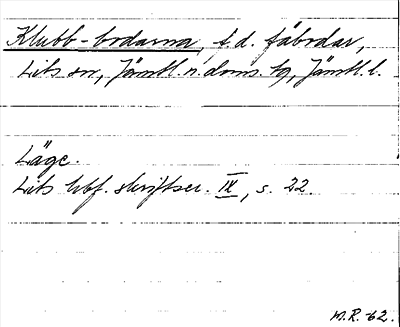 Klubb-bodarna, f.d. fäbodar,
Lits sn, Jämtl. n. doms. tg, Jämtl. l.
Läge.
Lits hbf. skriftser. IX, s. 22.
M.R. 62.